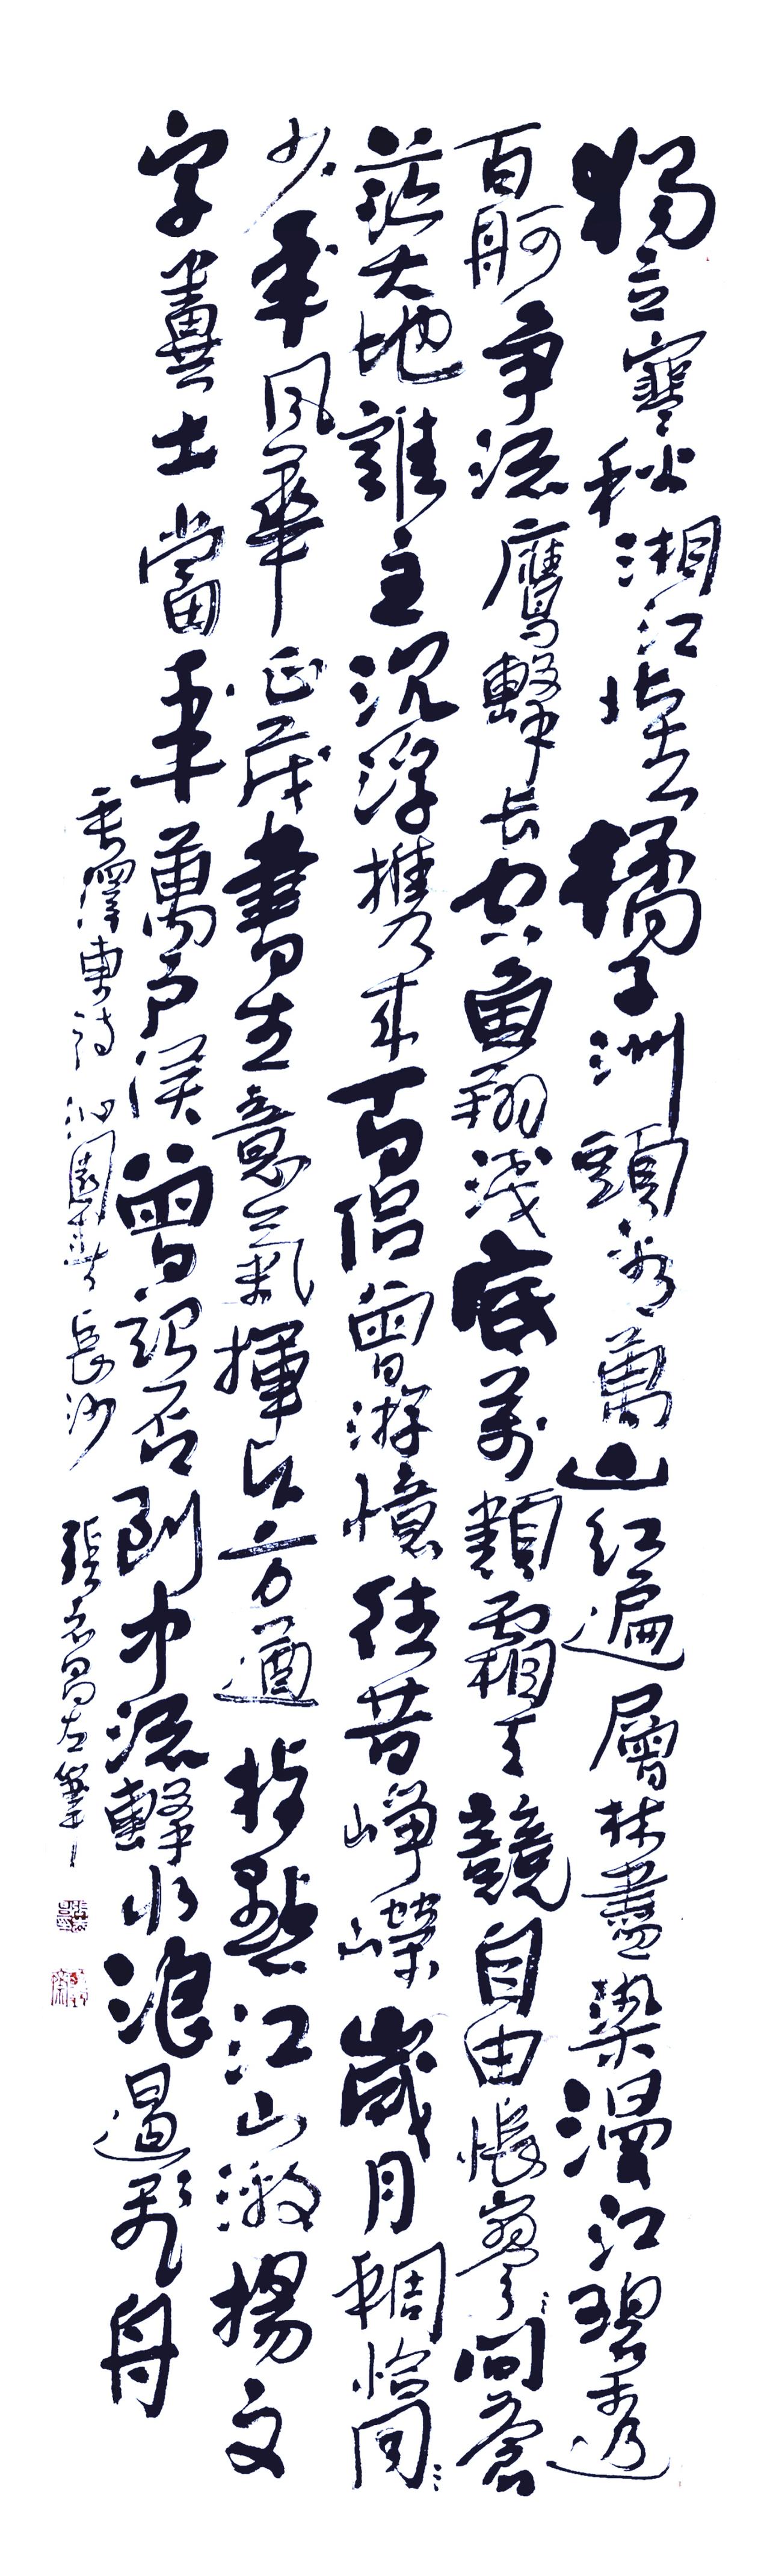 獨立寒秋湘江北去橘子洲頭看萬山紅遍層林盡染漫江碧透
百舸争流鷹擊长空鱼翔淺底万類霜天競自由悵寥問蒼
茫大地誰主沉浮携來百侣曾游憶往昔崢嶸歲月稠恰同
少年風華正茂書生意氣揮斥方遒指點江山激揚文
字糞土當年萬户侯曾記否到中流擊水浪遏飛舟
毛澤東詩沁園春長沙 張昌左筆